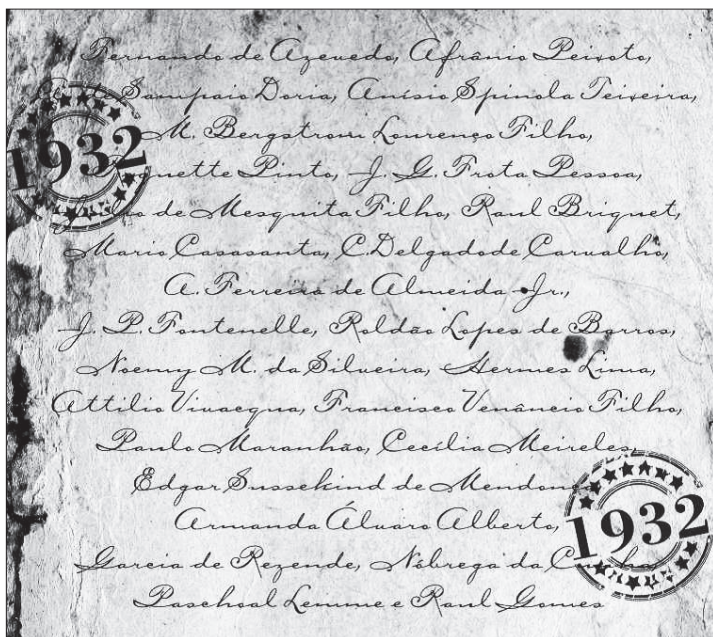 Fernando de Azevedo, Afrânio Peixoto,
Sampaio Doria, Anísio Spinola Teixeira,
M. Bergstrom Lourenço Filho,
Pinto, J. G. Frota Pessoa,
de Mesquita Filho, Raul Briquet,
Mario Casasanta, C. Delgado de Carvalho,
A. Ferreira de Almeida Jr.,
J. P. Fontenelle, Roldão Lopes de Barros,
Noemy M. da Silveira, Hermes Lima,
Attilio Vivacqua, Francisco Venâncio Filho,
Paulo Maranhão, Cecília Meireles,
Edgar Sussekind de
Armanda Álvaro Alberto,
Garcia de Rezende, Nóbrega da
Paschoal Lemme e Raul Gomes
1932
1932